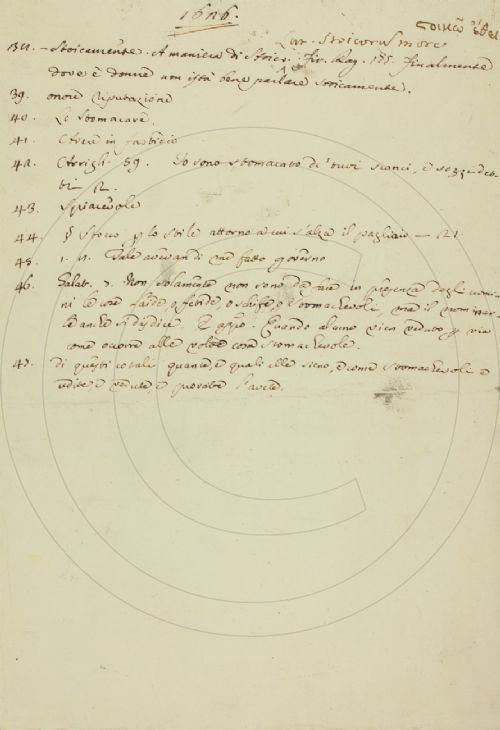 1626.
Lat. Stoicorum more
130. - Stoicamente. A maniera di Stoici. Fir. Rag. 185. finalmente
dove è donne um istà bene parlare stoicamente.
39. onore Riputazione
40. Lo Stomacare.
41. Avere in fastidio
42. Arrigh. 59. Io sono stomacato de' tuoi sconci, e sozzi det-
ti R.
43. Spiacevole
44. lo stile attorno a cui s'alza il pagliaio — R1.
45. fatto governo
46. Galat. 7. Non solamente non sono da fare in presenza degli uomi-
ni le cose laide, o fetide, o schife, o stomachevoli, ma il nomi-
anche si disdice. E appo. Quando alcuno vien veduto per via
come occorre alle volte cosa stomachevole.
47. di questi cotali quante, e quali elle sieno, e come stomachevoli e
udite, e vedute, e provate l'avete.